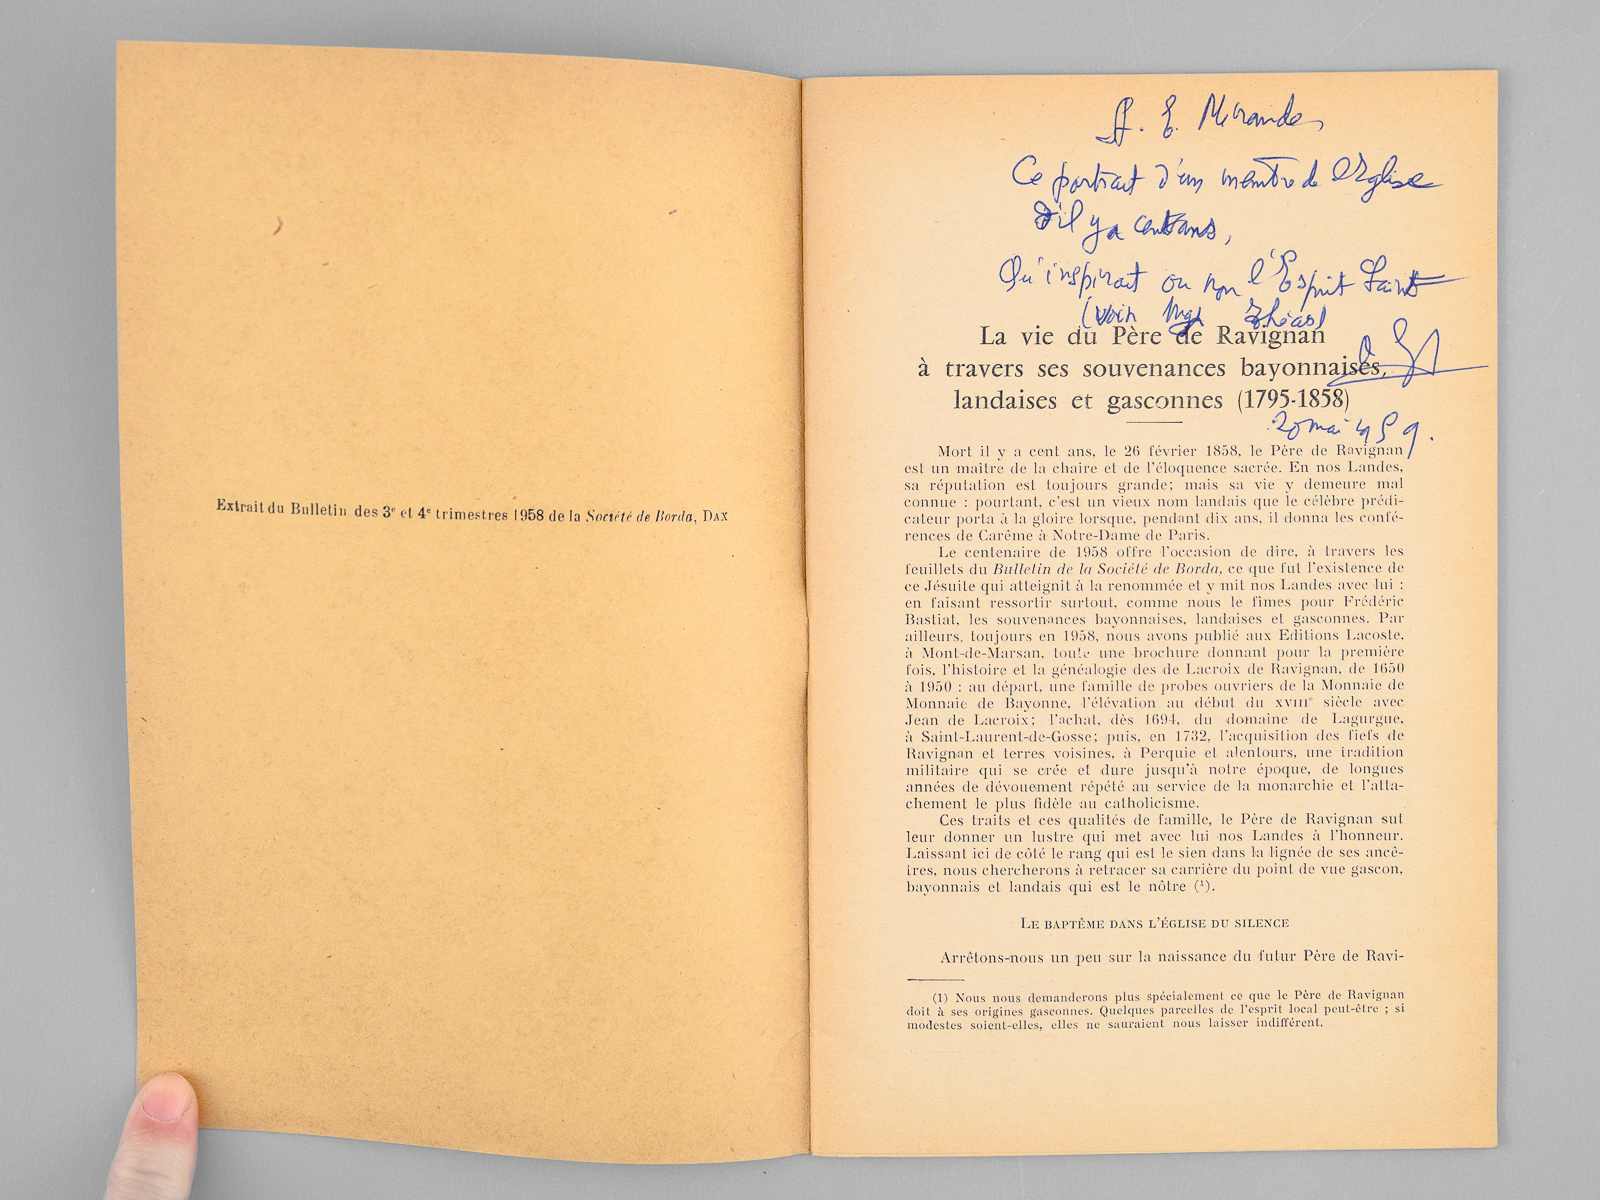 Extrait du Bulletin des 3e et 4e trimestres 1958 de la Société de Borda, DAX
E. Mirande,
Ce portrait d'un membre de l'Eglise
d'il y a cent ans,
Qu'inspirait ou non l'Esprit Saint
(voir Mgr Théas)
La vie du Père de Ravignan
à travers ses souvenances bayonnaises,
landaises et gasconnes (1795-1858)
20 mai 1959.
Mort il y a cent ans, le 26 février 1858, le Père de Ravignan
est un maître de la chaire et de l'éloquence sacrée. En nos Landes,
sa réputation est toujours grande; mais sa vie y demeure mal
connue : pourtant, c'est un vieux nom landais que le célèbre prédi-
cateur porta à la gloire lorsque, pendant dix ans, il donna les confé-
rences de Carême à Notre-Dame de Paris.
Le centenaire de 1958 offre l'occasion de dire, à travers les
feuillets du Bulletin de la Société de Borda, ce que fut l'existence de
ce Jésuite qui atteignit à la renommée et y mit nos Landes avec lui :
en faisant ressortir surtout, comme nous le fîmes pour Frédéric
Bastiat, les souvenances bayonnaises, landaises et gasconnes. Par
ailleurs, toujours en 1958, nous avons publié aux Editions Lacoste,
à Mont-de-Marsan, toute une brochure donnant pour la première
fois, l'histoire et la généalogie des de Lacroix de Ravignan, de 1650
à 1950 : au départ, une famille de probes ouvriers de la Monnaie de
Monnaie de Bayonne, l'élévation au début du XVIIIe siècle avec
Jean de Lacroix; l'achat, dès 1694, du domaine de Lagurgue,
à Saint-Laurent-de-Gosse; puis, en 1732, l'acquisition des fiefs de
Ravignan et terres voisines, à Perquie et alentours, une tradition
militaire qui se crée et dure jusqu'à notre époque, de longues
années de dévouement répété au service de la monarchie et l'atta-
chement le plus fidèle au catholicisme.
Ces traits et ces qualités de famille, le Père de Ravignan sut
leur donner un lustre qui met avec lui nos Landes à l'honneur.
Laissant ici de côté le rang qui est le sien dans la lignée de ses ancê-
tres, nous chercherons à retracer sa carrière du point de vue gascon,
bayonnais et landais qui est le nôtre (1).
LE BAPTÊME DANS L'ÉGLISE DU SILENCE
Arrêtons-nous un peu sur la naissance du futur Père de Ravi-
(1) Nous nous demanderons plus spécialement ce que le Père de Ravignan
doit à ses origines gasconnes. Quelques parcelles de l'esprit local peut-être ; si
modestes soient-elles, elles ne sauraient nous laisser indifférent.